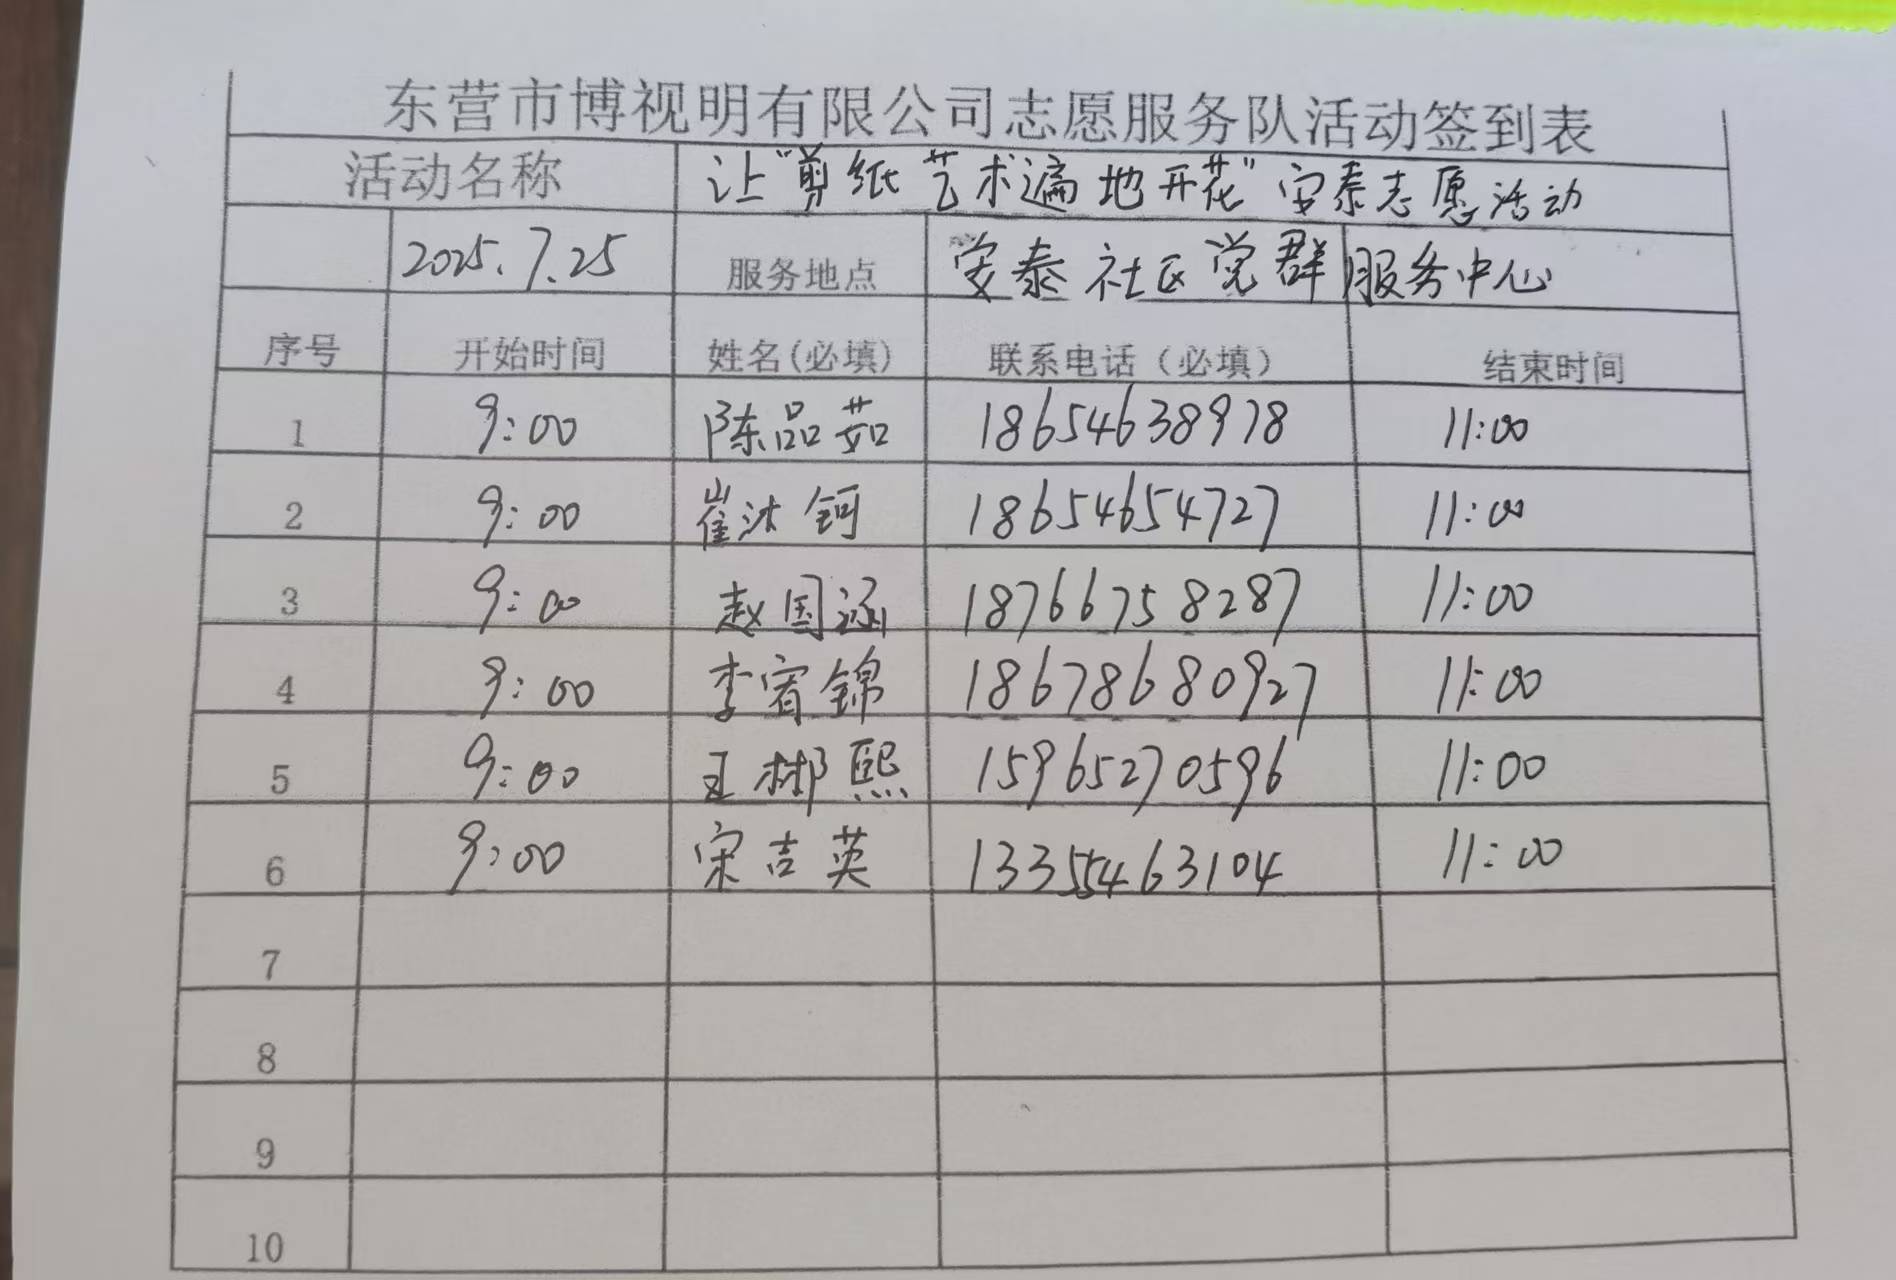 东营市博视明有限公司志愿服务队活动签到表
活动名称 让"剪纸艺术遍地开花"安泰志愿活动
2025.7.25 服务地点 安泰社区党群服务中心
序号 开始时间 姓名(必填) 联系电话（必填） 结束时间
1 9:00 陈品茹 18654638978 11:00
2 9:00 崔沐钶 18654654727 11:00
3 9:00 赵国涵 18766758287 11:00
4 9:00 李宥锦 18678680927 11:00
5 9:00 王彬熙 15965270596 11:00
6 9:00 宋吉英 13355463104 11:00
7
8
9
10